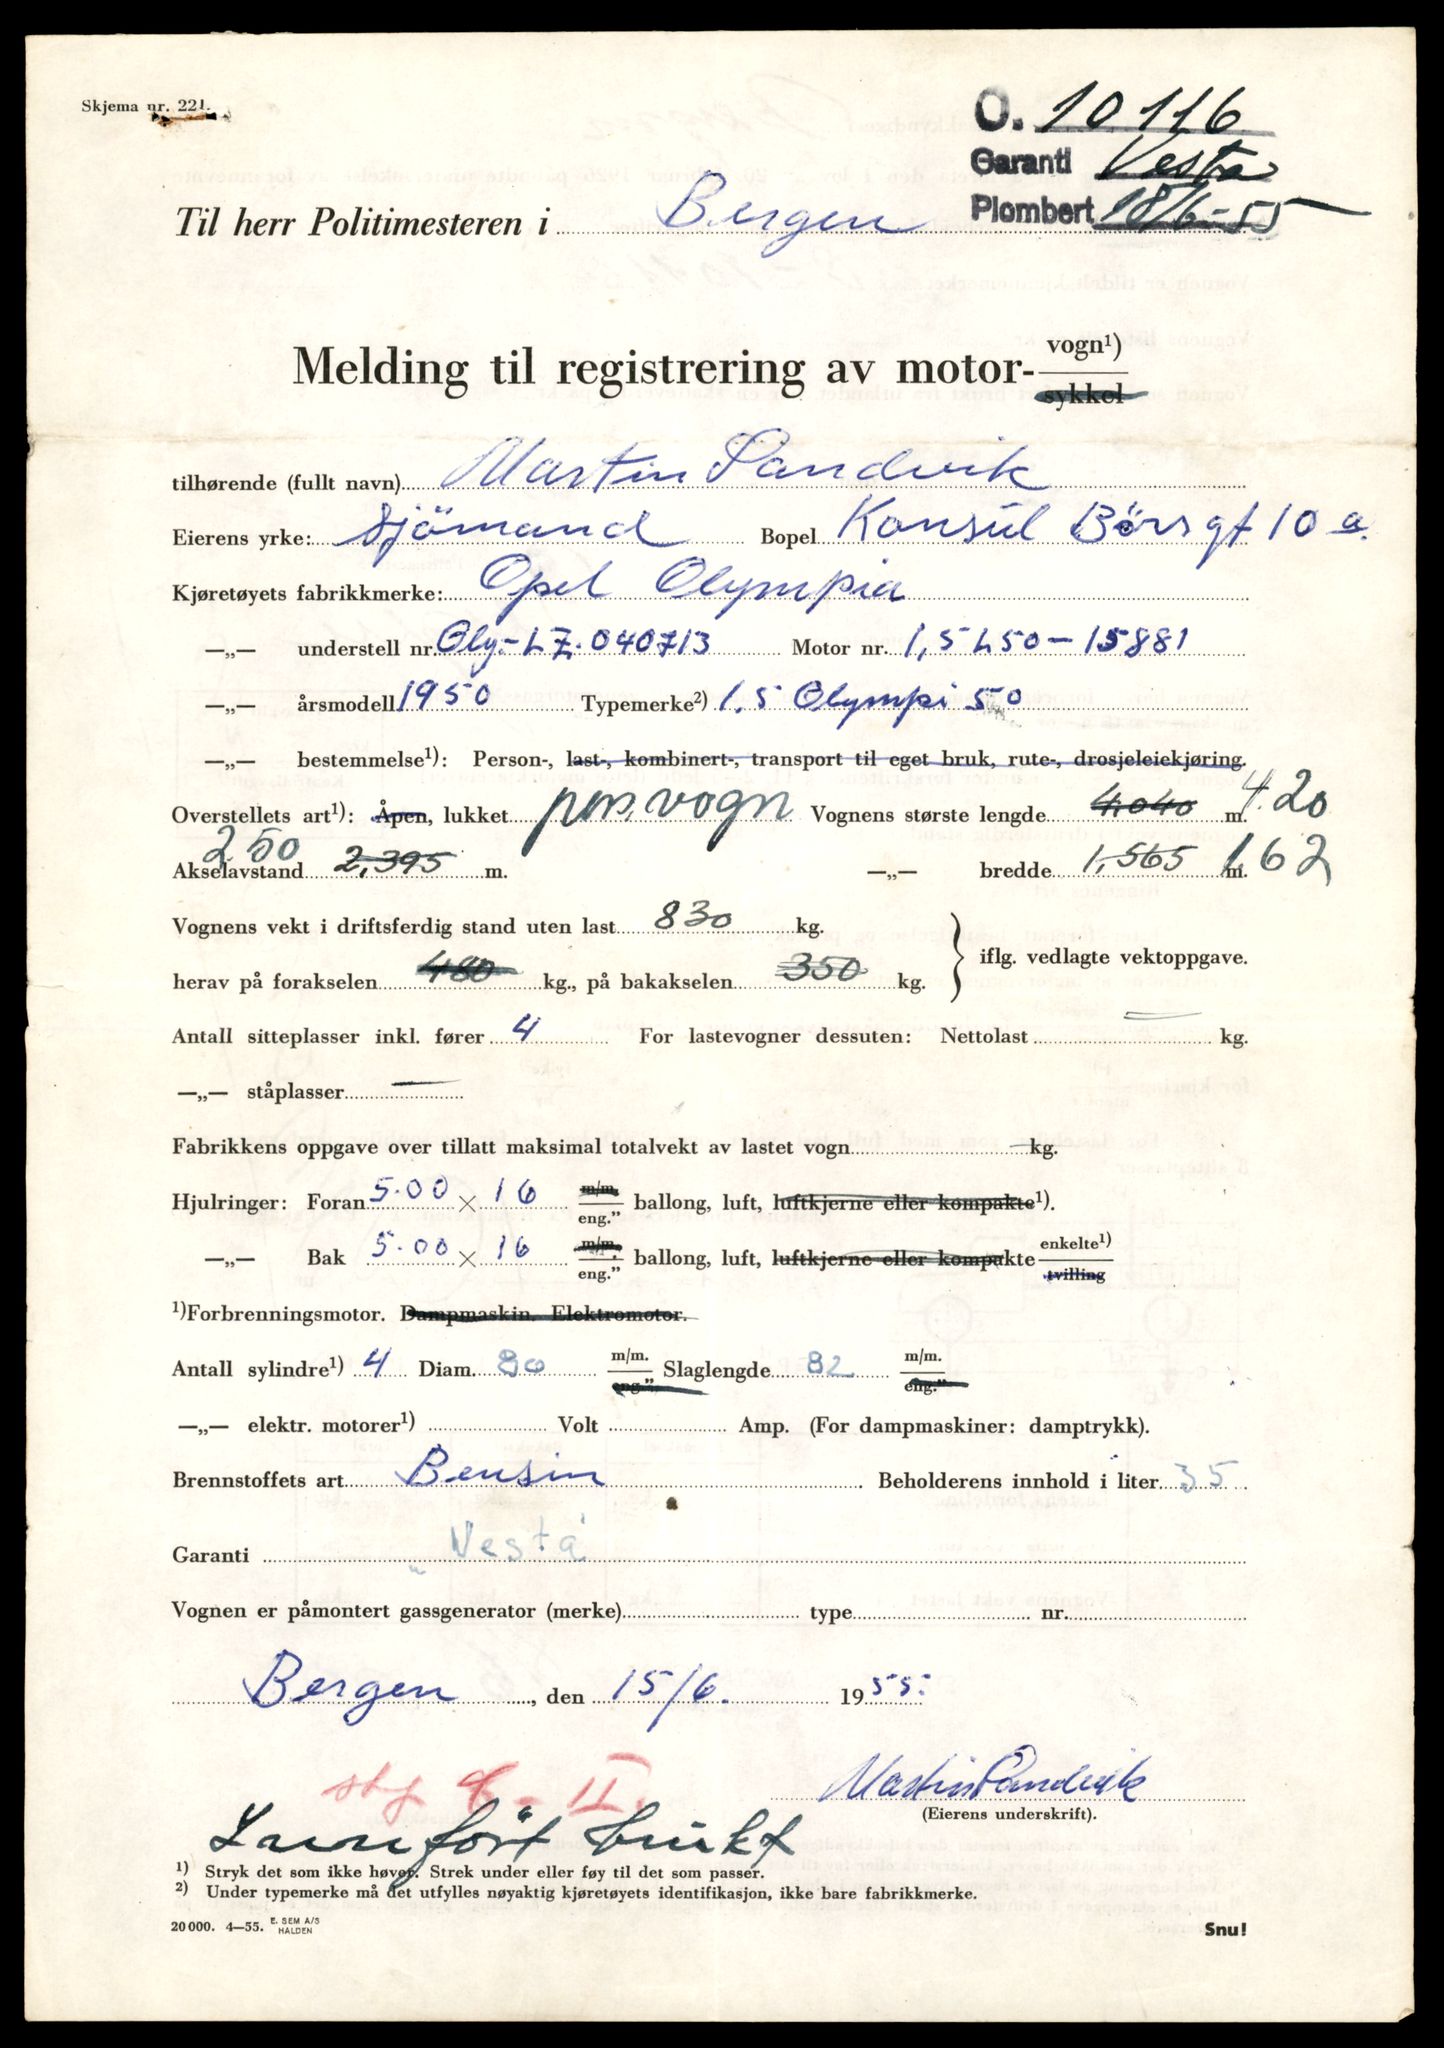 Skjema nr. 221.
O. 10116
Garanti Vesta
Plombert 18/6-55
Til herr Politimesteren i Bergen
Melding til registrering av motor- vogn¹)
sykkel
tilhørende (fullt navn) Martin Sandvik
Eierens yrke: Sjömand Bopel Konsul Börs gt 10 a.
Kjøretøyets fabrikkmerke: Opel Olympia
—„— understell nr. Oly.-LZ.040713 Motor nr. 1,5 L50-15881
—„— årsmodell 1950 Typemerke²) 1.5 Olympi 50
—„— bestemmelse¹): Person-, last-, kombinert-, transport til eget bruk, rute-, drosjeleiekjøring.
Overstellets art¹): Åpen, lukket pers.vogn Vognens største lengde 4.040 m. 4.20
250
Akselavstand 2,395 m. —„— bredde 1,565 m. 1.62
Vognens vekt i driftsferdig stand uten last 830 kg.
herav på forakselen 480 kg., på bakakselen 350 kg. iflg. vedlagte vektoppgave.
Antall sitteplasser inkl. fører 4 For lastevogner dessuten: Nettolast — kg.
—„— ståplasser —
Fabrikkens oppgave over tillatt maksimal totalvekt av lastet vogn — kg.
Hjulringer: Foran 5.00 × 16 m/m. eng.” ballong, luft, luftkjerne eller kompakte¹).
—„— Bak 5.00 × 16 m/m. eng.” ballong, luft, luftkjerne eller kompakte enkelte¹) tvilling
¹)Forbrenningsmotor. Dampmaskin. Elektromotor.
Antall sylindre¹) 4 Diam. 80 m/m. eng.” Slaglengde 82 m/m. eng.”
—„— elektr. motorer¹) Volt Amp. (For dampmaskiner: damptrykk).
Brennstoffets art Bensin Beholderens innhold i liter 35
Garanti „Vesta"
Vognen er påmontert gassgenerator (merke) type nr.
Bergen, den 15/6. 1955.
Martin Sandvik
(Eierens underskrift).
II.
brukt
¹) Stryk det som ikke høver. Strek under eller føy til det som passer.
²) Under typemerke må det utfylles nøyaktig kjøretøyets identifikasjon, ikke bare fabrikkmerke.
20 000. 4—55. E. SEM A/S HALDEN
Snu!